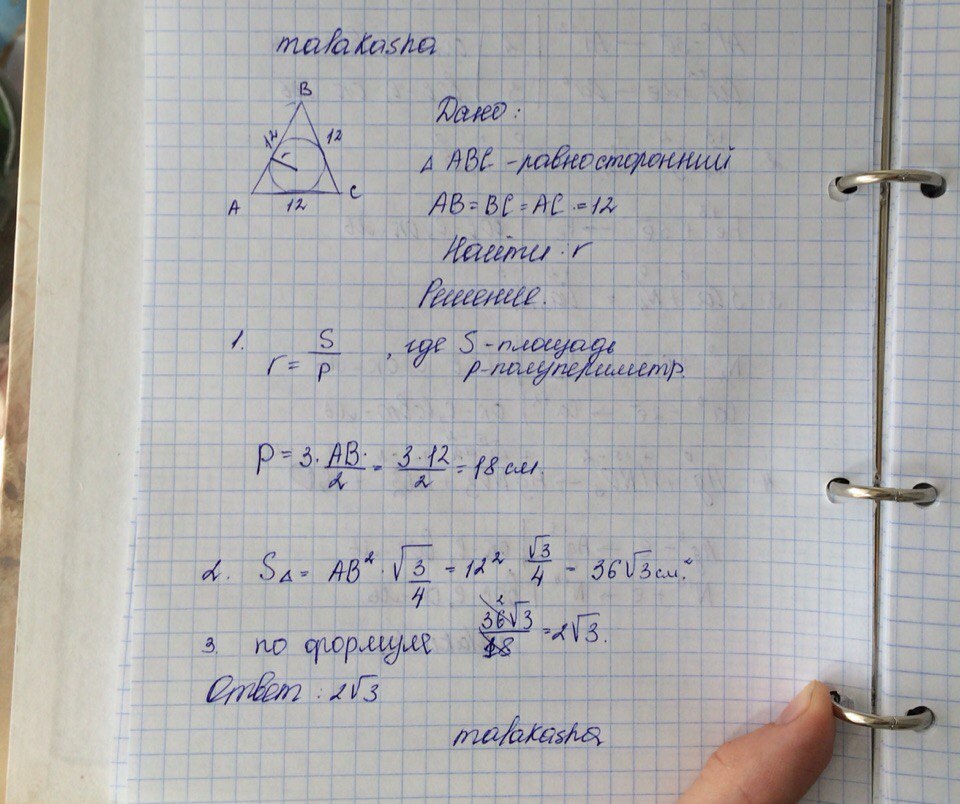 malakasha
B
12 12
r
A 12 C
Дано:
△ ABC - равносторонний
AB = BC = AC = 12
Найти: r
Решение.
1. r = S/p , где S - площадь
p - полупериметр.
p = 3 · AB/2 = 3·12/2 = 18 см.
2. S△ = AB² · √3/4 = 12² · √3/4 = 36√3 см².
3. по формуле 36√3/18 = 2√3.
2
Ответ: 2√3
malakasha